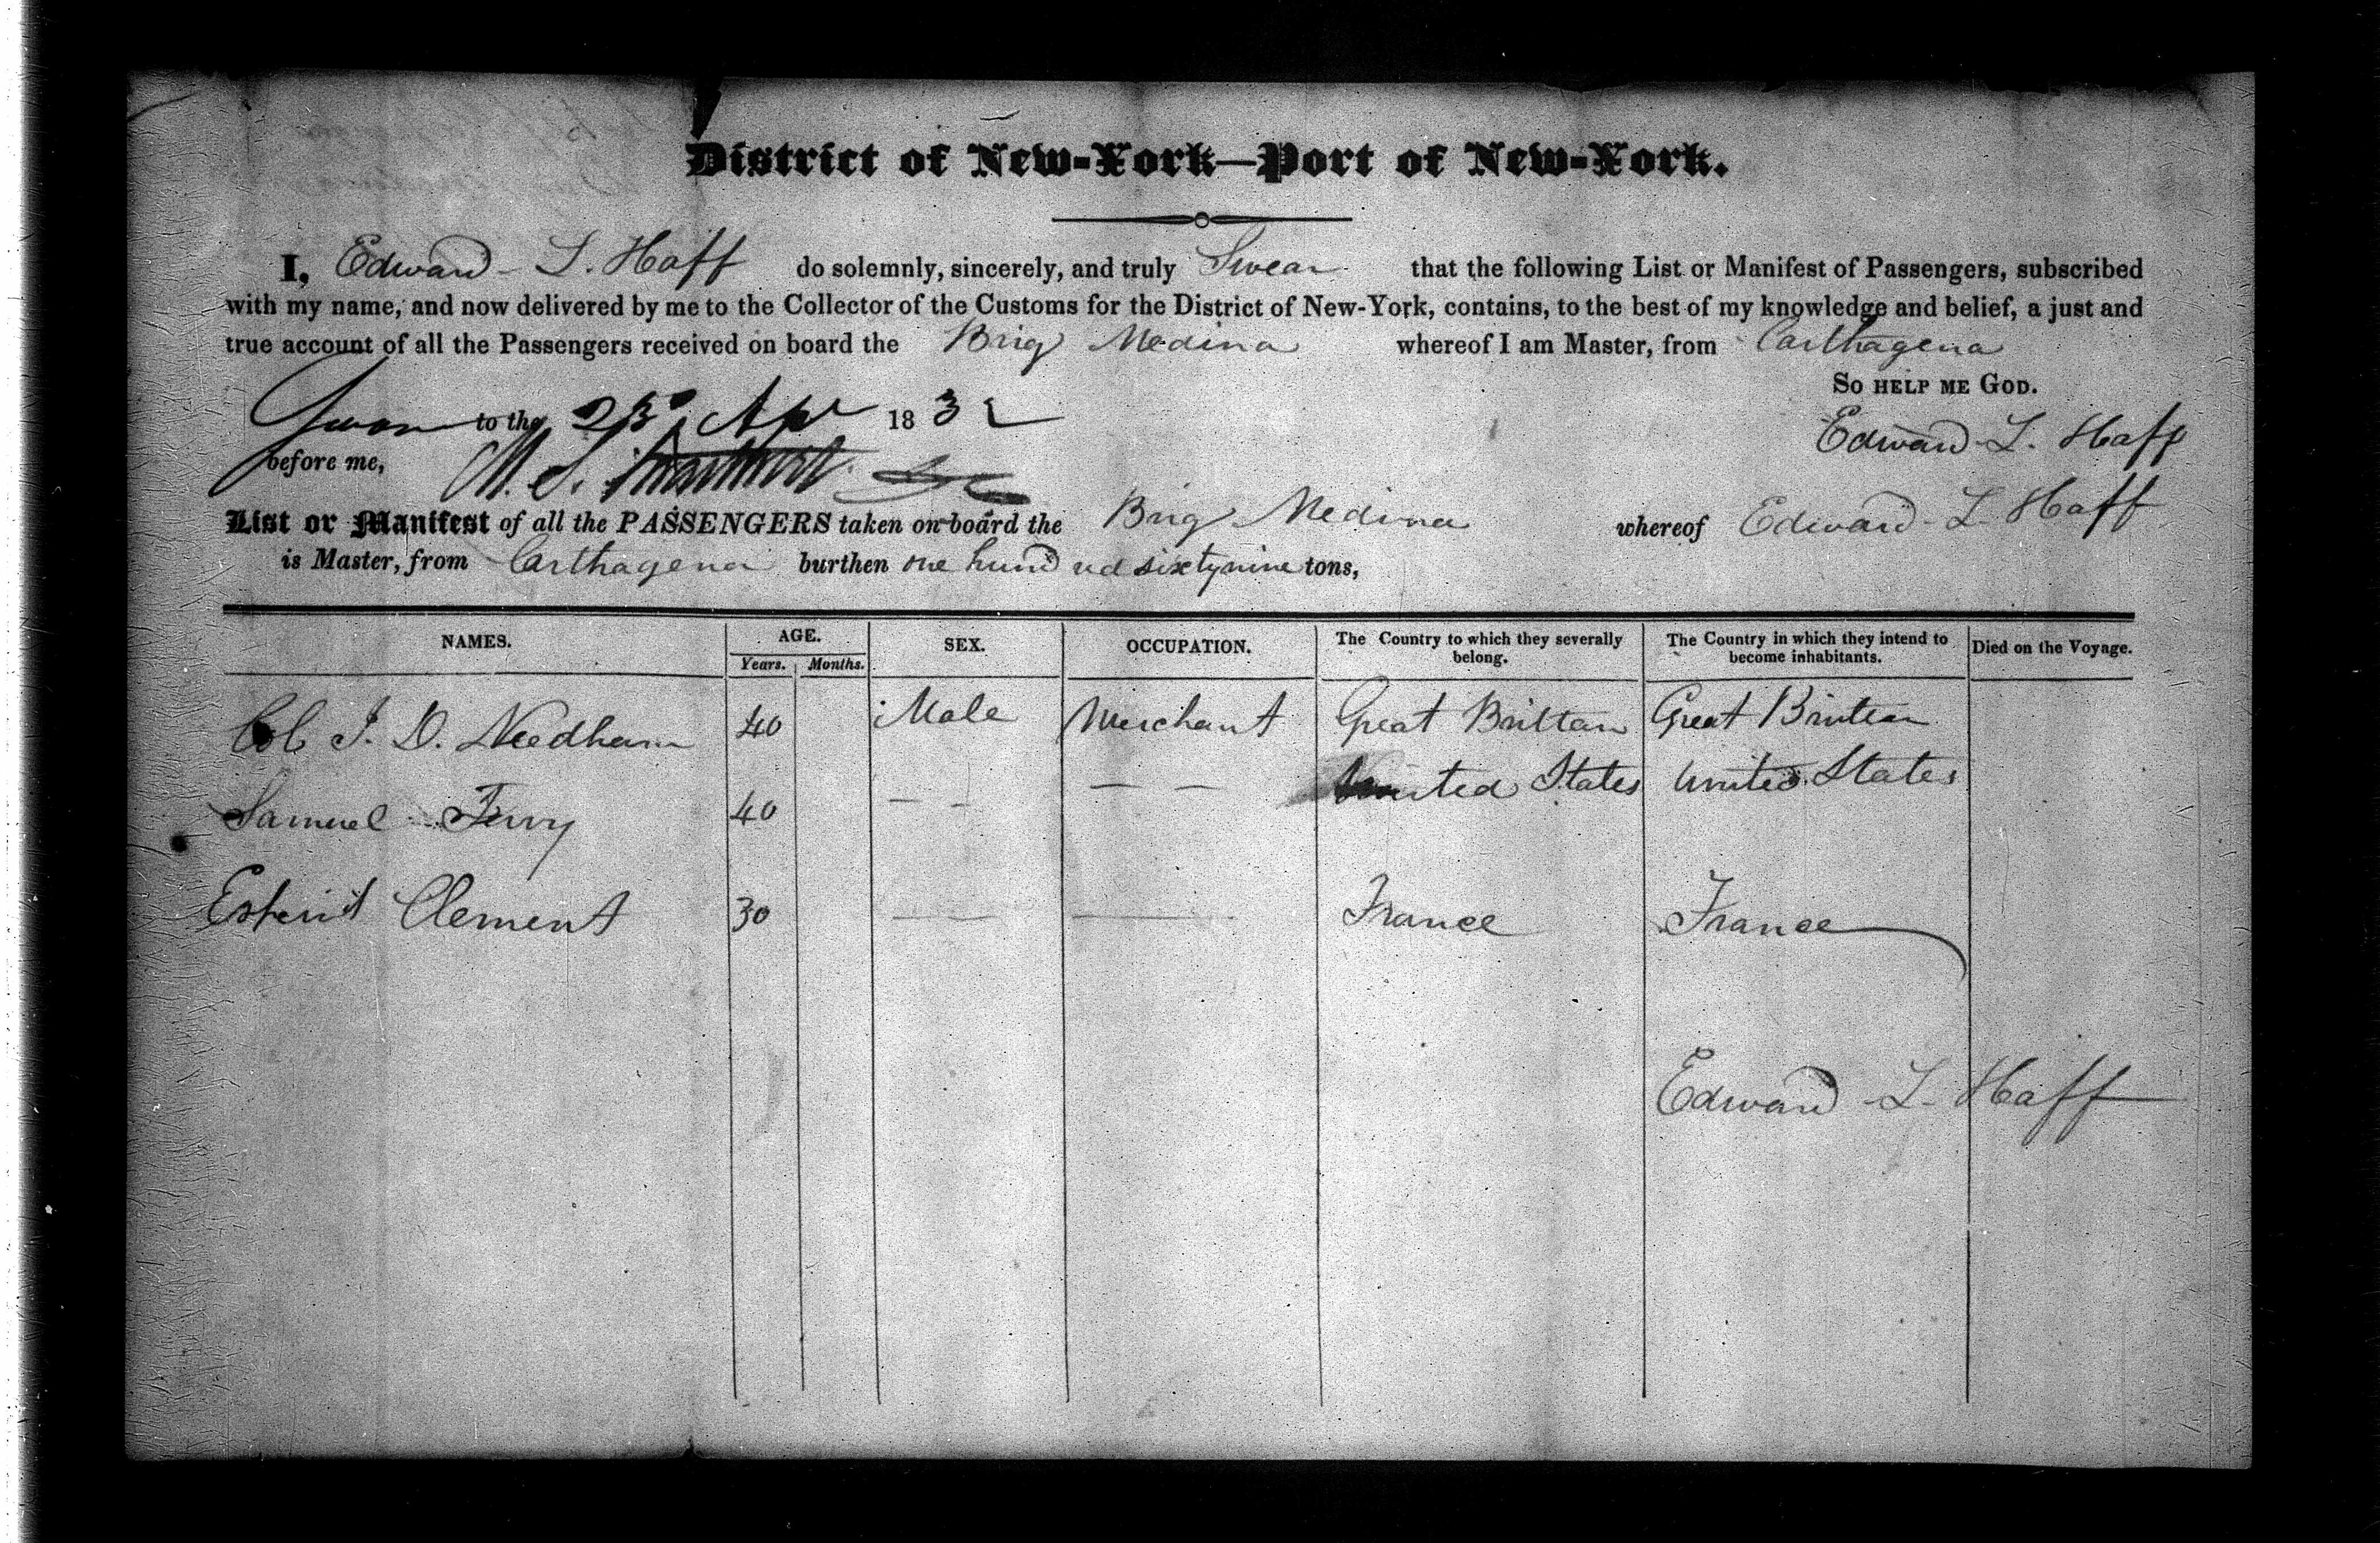 District of New-York—Port of New-York.
I, Edward L. Haff do solemnly, sincerely, and truly Swear that the following List or Manifest of Passengers, subscribed
with my name, and now delivered by me to the Collector of the Customs for the District of New-York, contains, to the best of my knowledge and belief, a just and
true account of all the Passengers received on board the Brig Medina whereof I am Master, from Carthagena
So HELP ME GOD.
Sworn to the 23d Apr 1832
Edward L. Haff
before me, M. S.
List or Manifest of all the PASSENGERS taken on board the Brig Medina whereof Edward L. Haff
is Master, from Carthagena burthen one hundred sixty nine tons,
NAMES. AGE. SEX. OCCUPATION. The Country to which they severally belong. The Country in which they intend to become inhabitants. Died on the Voyage.
Years. Months.
Col J. D. Needham 40 Male Merchant Great Brittan Great Brittan
Samuel 40 — — — — United States United States
Clement 30 — — France France
Edward L. Haff